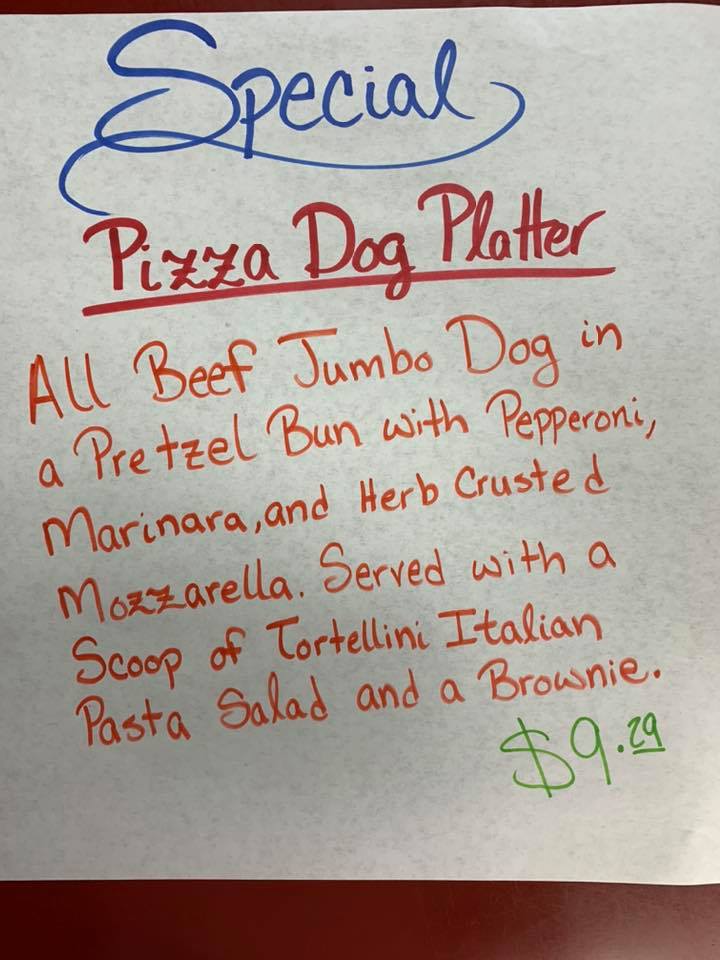 Special
Pizza Dog Platter
All Beef Jumbo Dog in
a Pretzel Bun with Pepperoni,
Marinara, and Herb Crusted
Mozzarella. Served with a
Scoop of Tortellini Italian
Pasta Salad and a Brownie.
$9.29